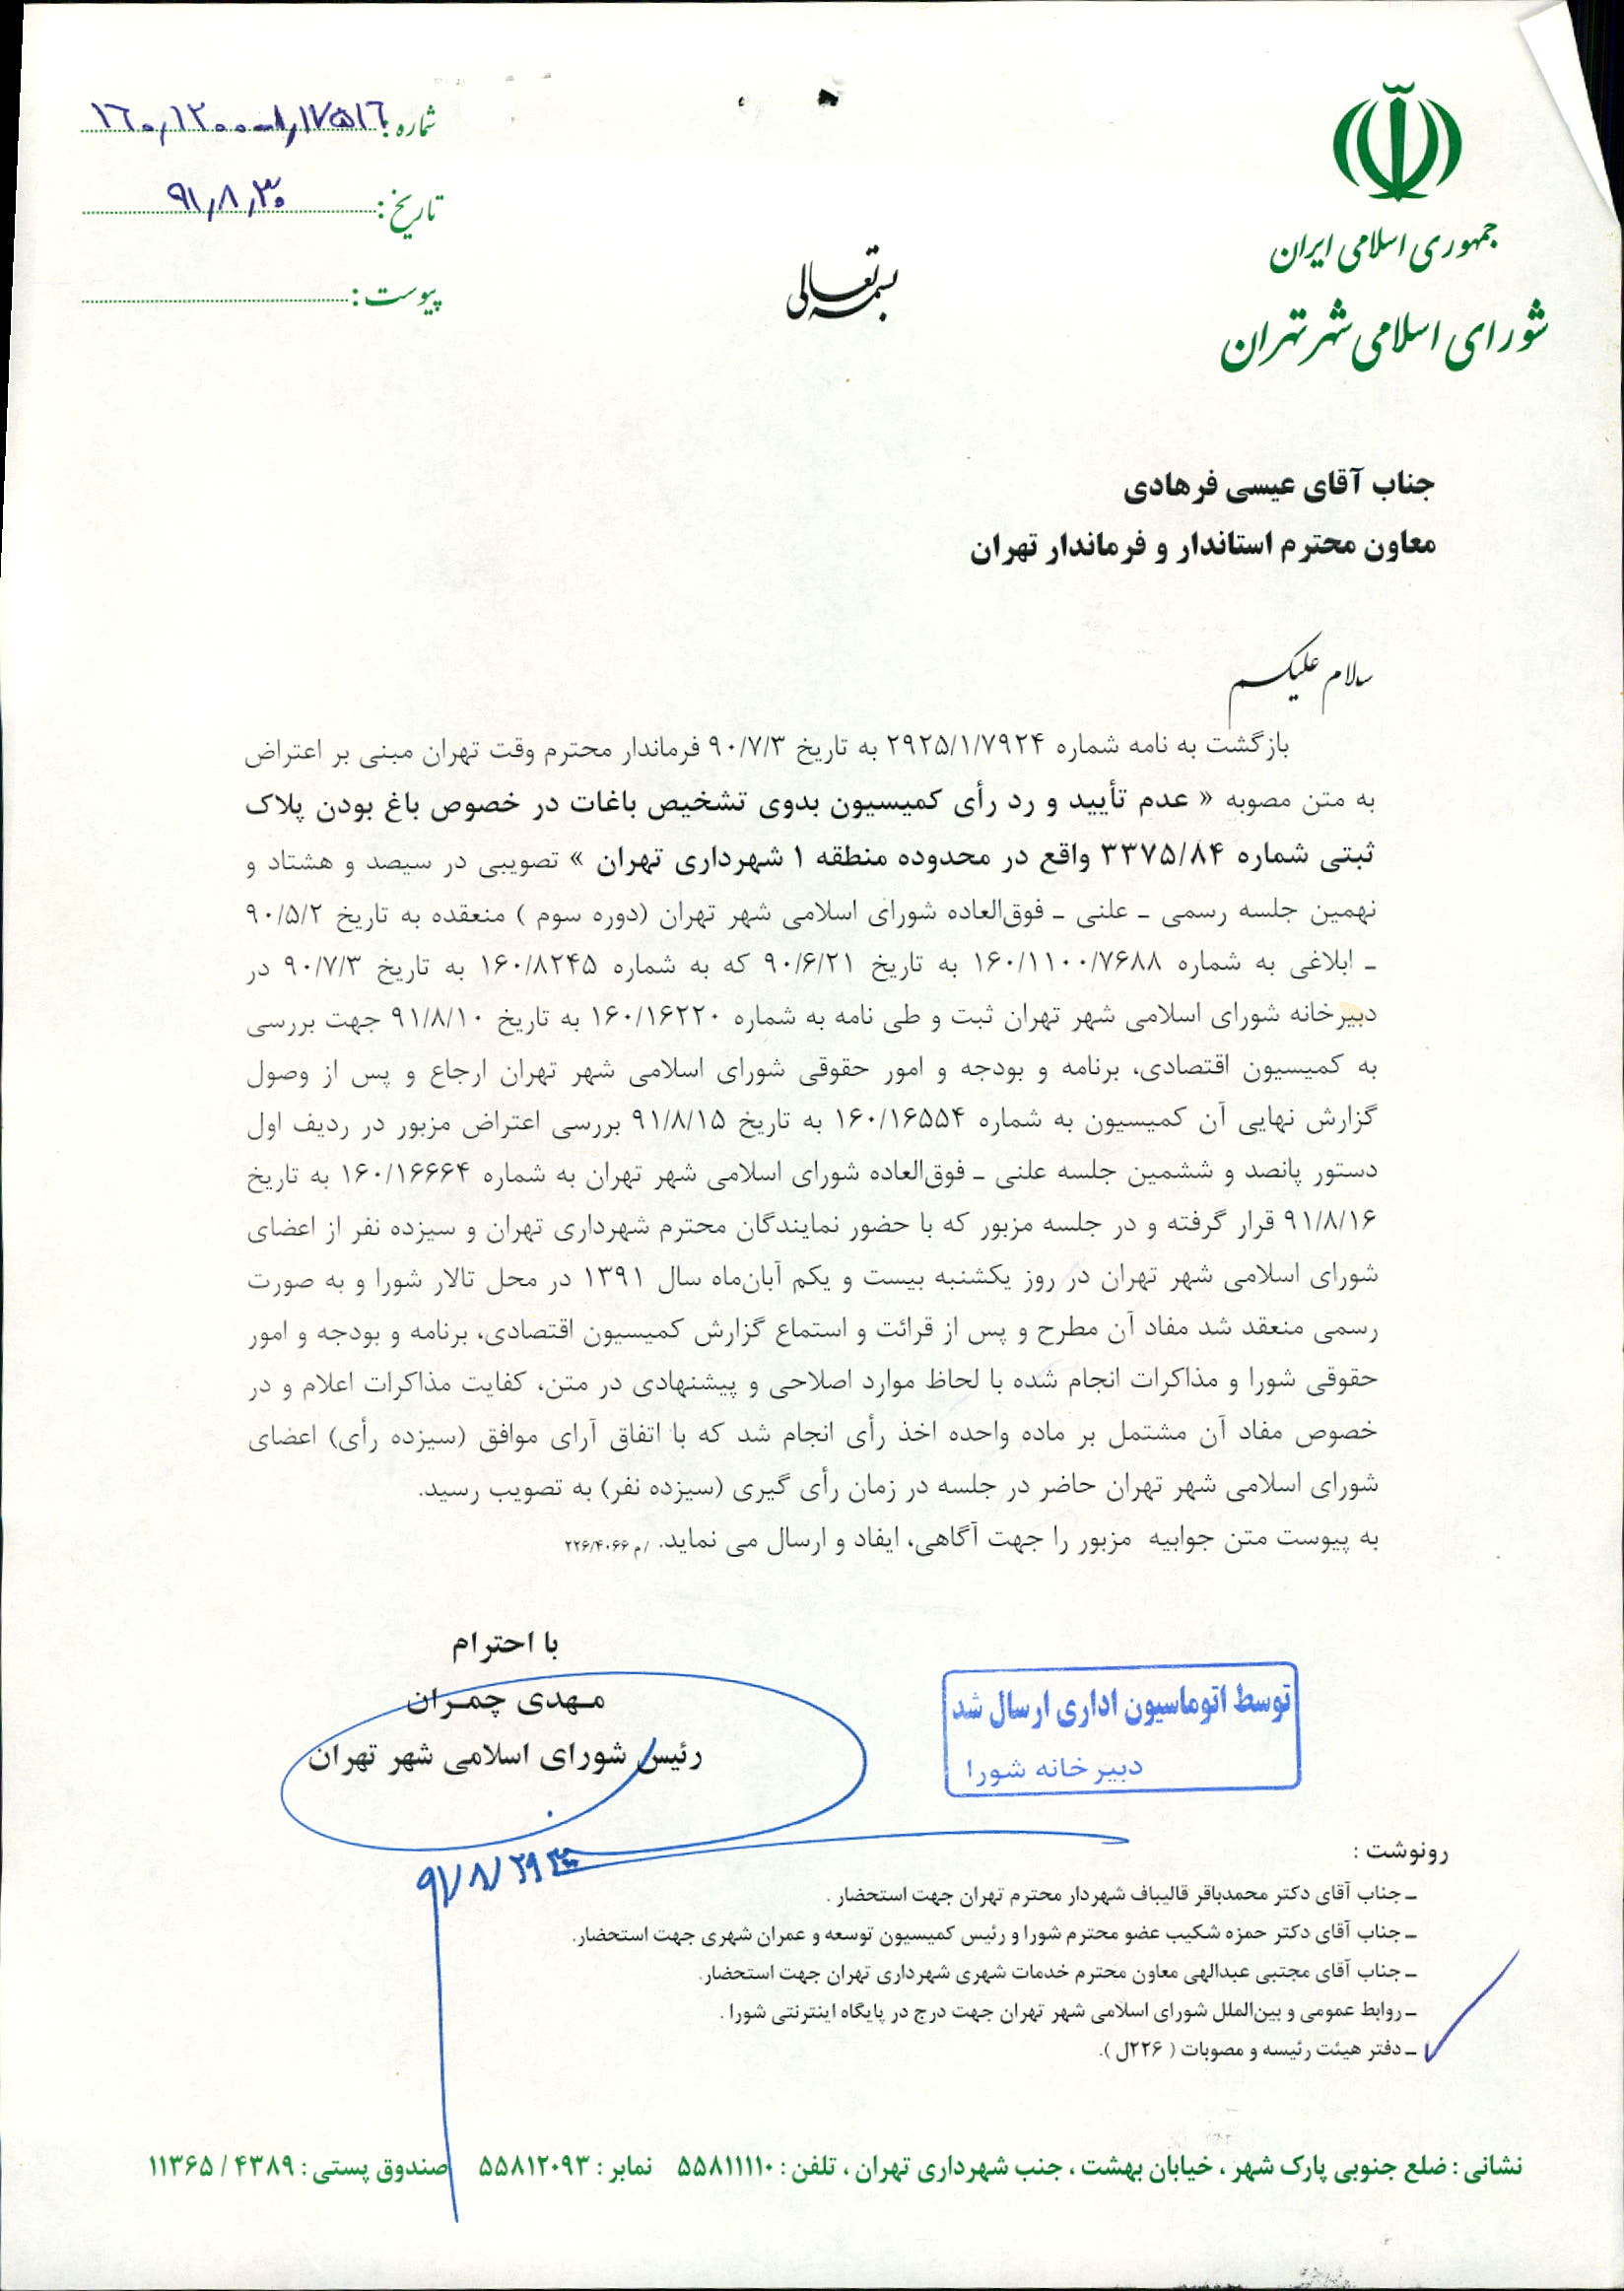 جمهوری اسلامی ایران
شورای اسلامی شهر تهران
شماره: ۱۶۰/۱۲۰۰-۱/۱۷۵۱۶
تاریخ: ۹۱/۸/۳۰
پیوست:
بسمه تعالی
جناب آقای عیسی فرهادی
معاون محترم استاندار و فرماندار تهران
سلام علیکم
بازگشت به نامه شماره ۲۹۲۵/۱/۷۹۲۴ به تاریخ ۹۰/۷/۳ فرماندار محترم وقت تهران مبنی بر اعتراض
به متن مصوبه « عدم تأیید و رد رأی کمیسیون بدوی تشخیص باغات در خصوص باغ بودن پلاک
ثبتی شماره ۳۳۷۵/۸۴ واقع در محدوده منطقه ۱ شهرداری تهران » تصویبی در سیصد و هشتاد و
نهمین جلسه رسمی ـ علنی ـ فوق‌العاده شورای اسلامی شهر تهران (دوره سوم ) منعقده به تاریخ ۹۰/۵/۲
ـ ابلاغی به شماره ۱۶۰/۱۱۰۰/۷۶۸۸ به تاریخ ۹۰/۶/۲۱ که به شماره ۱۶۰/۸۲۴۵ به تاریخ ۹۰/۷/۳ در
دبیرخانه شورای اسلامی شهر تهران ثبت و طی نامه به شماره ۱۶۰/۱۶۲۲۰ به تاریخ ۹۱/۸/۱۰ جهت بررسی
به کمیسیون اقتصادی، برنامه و بودجه و امور حقوقی شورای اسلامی شهر تهران ارجاع و پس از وصول
گزارش نهایی آن کمیسیون به شماره ۱۶۰/۱۶۵۵۴ به تاریخ ۹۱/۸/۱۵ بررسی اعتراض مزبور در ردیف اول
دستور پانصد و ششمین جلسه علنی ـ فوق‌العاده شورای اسلامی شهر تهران به شماره ۱۶۰/۱۶۶۶۴ به تاریخ
۹۱/۸/۱۶ قرار گرفته و در جلسه مزبور که با حضور نمایندگان محترم شهرداری تهران و سیزده نفر از اعضای
شورای اسلامی شهر تهران در روز یکشنبه بیست و یکم آبان‌ماه سال ۱۳۹۱ در محل تالار شورا و به صورت
رسمی منعقد شد مفاد آن مطرح و پس از قرائت و استماع گزارش کمیسیون اقتصادی، برنامه و بودجه و امور
حقوقی شورا و مذاکرات انجام شده با لحاظ موارد اصلاحی و پیشنهادی در متن، کفایت مذاکرات اعلام و در
خصوص مفاد آن مشتمل بر ماده واحده اخذ رأی انجام شد که با اتفاق آرای موافق (سیزده رأی) اعضای
شورای اسلامی شهر تهران حاضر در جلسه در زمان رأی گیری (سیزده نفر) به تصویب رسید.
به پیوست متن جوابیه مزبور را جهت آگاهی، ایفاد و ارسال می نماید. /م ۲۲۶/۴۰۶۶
با احترام
مهدی چمران
رئیس شورای اسلامی شهر تهران
۹۱/۸/۲۹
توسط اتوماسیون اداری ارسال شد
دبیرخانه شورا
رونوشت :
ـ جناب آقای دکتر محمدباقر قالیباف شهردار محترم تهران جهت استحضار .
ـ جناب آقای دکتر حمزه شکیب عضو محترم شورا و رئیس کمیسیون توسعه و عمران شهری جهت استحضار.
ـ جناب آقای مجتبی عبدالهی معاون محترم خدمات شهری شهرداری تهران جهت استحضار.
ـ روابط عمومی و بین‌الملل شورای اسلامی شهر تهران جهت درج در پایگاه اینترنتی شورا .
ـ دفتر هیئت رئیسه و مصوبات ( ۲۲۶ل ).
نشانی : ضلع جنوبی پارک شهر ، خیابان بهشت ، جنب شهرداری تهران ، تلفن : ۵۵۸۱۱۱۱۰ نمابر : ۵۵۸۱۲۰۹۳ صندوق پستی : ۴۳۸۹ / ۱۱۳۶۵